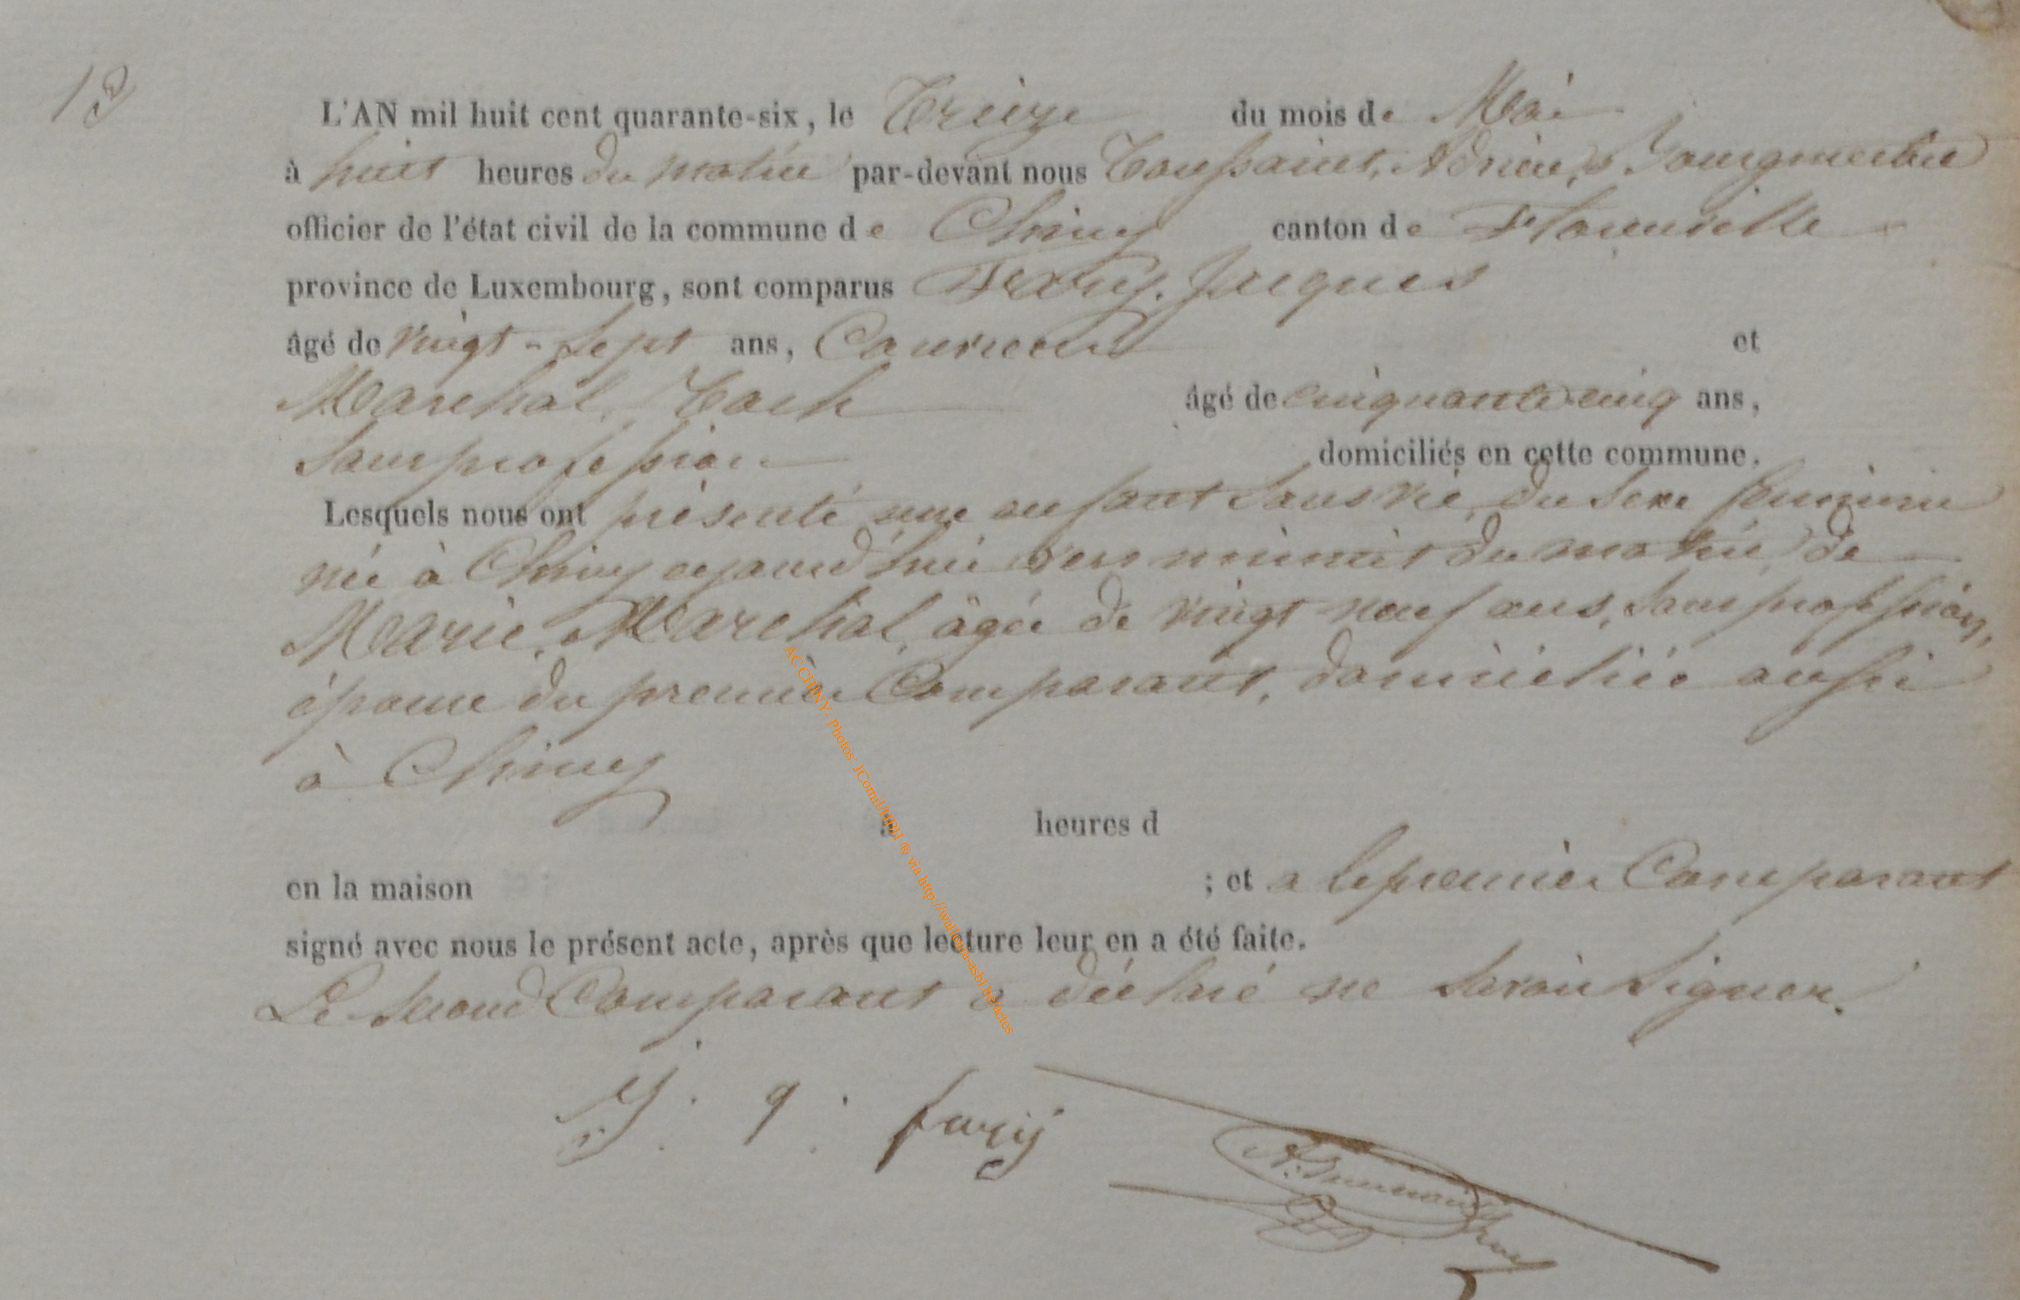 13
L'AN mil huit cent quarante-six, le Treize du mois de Mai
à huit heures du matin par-devant nous Toussaint, Adrien, Bourgmestre
officier de l'état civil de la commune de Chiny canton de Florenville
province de Luxembourg, sont comparus Fery, Jacques
âgé de vingt-sept ans, et
Marechal, âgé de cinquante-cinq ans,
Sans profession domiciliés en cette commune.
Lesquels nous ont présenté une enfant sans vie, du sexe feminin
née à Chiny aujourd'hui vers minuit du matin, de
Marie, Marechal, âgée de vingt-neuf ans, sans profession,
épouse du premier Comparant, domiciliée aussi
à Chiny
à heures d
en la maison ; et a le premier Comparant
signé avec nous le présent acte, après que lecture leur en a été faite.
Le second Comparant a déclaré ne savoir signer.
J.
AC CHINY - Photos' via